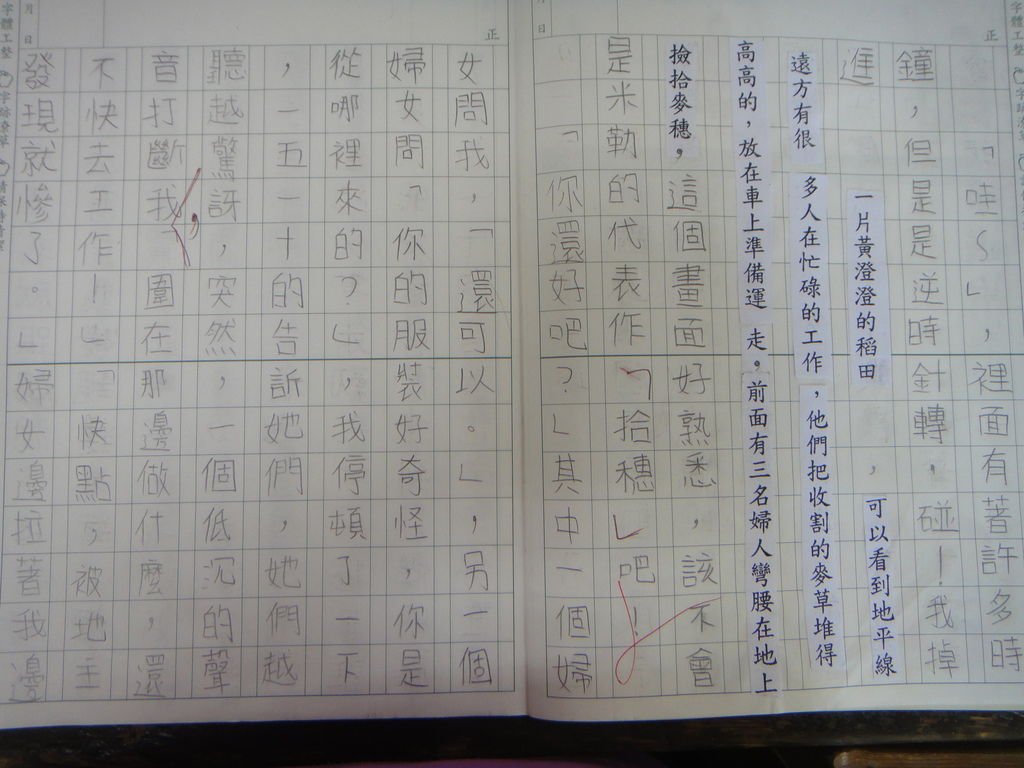 「哇~」,裡面有著許多時
鐘,但是是逆時針轉,碰!我掉
進一片黃澄澄的稻田,可以看到地平線
遠方有很多人在忙碌的工作,他們把收割的麥草堆得
高高的,放在車上準備運走。前面有三名婦人彎腰在地上
撿拾麥穗,這個畫面好熟悉,該不會
是米勒的代表作「拾穗」吧!
「你還好吧?」其中一個婦
女問我,「還可以。」,另一個
婦女問「你的服裝好奇怪,你是
從哪裡來的?」,我停頓了一下
,一五一十的告訴她們,她們越
聽越驚訝,突然,一個低沉的聲
音打斷我,「圍在那邊做什麼,還
不快去工作!」「快點,被地主
發現就慘了。」婦女邊拉著我邊
正
月
日
字體工整
正
日
字體工整